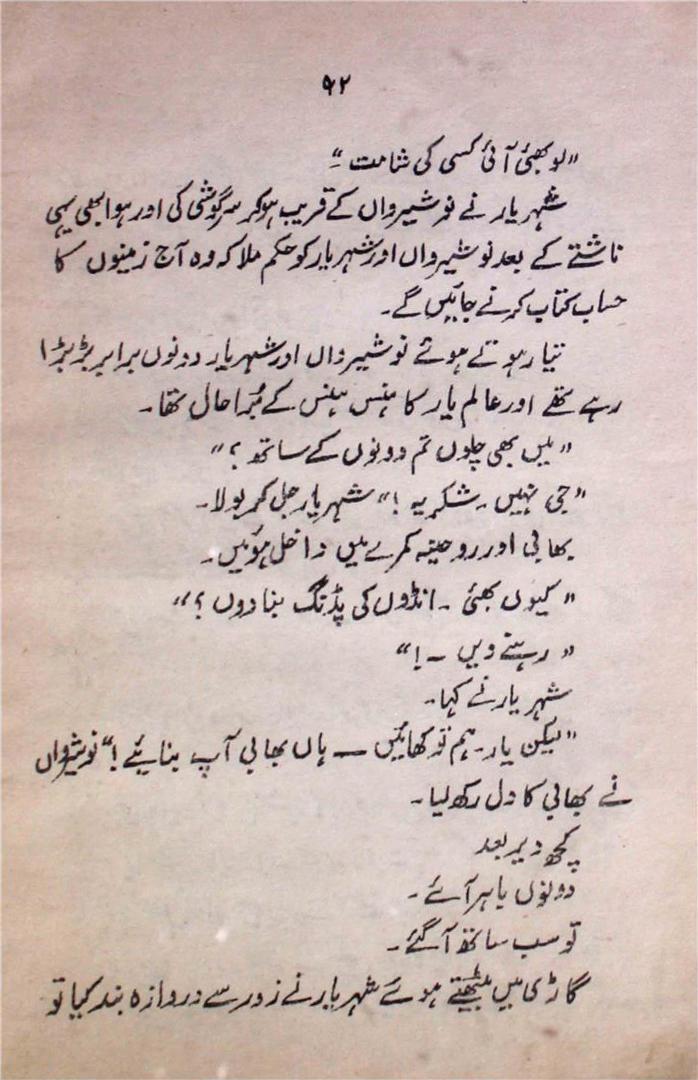 ۶۲
"لو بھئی آئی کسی کی شامت۔"
شہریار نے نوشیرواں کے قریب ہو کر سرگوشی کی اور ہوا بھی یہی
ناشتے کے بعد نوشیرواں اور شہریار کو حکم ملا کہ وہ آج زمینوں کا
حساب کتاب کرنے جائیں گے۔
تیار ہوتے ہوئے نوشیرواں اور شہریار دونوں برابر بڑبڑا
رہے تھے اور عالم یار کا ہنس ہنس کے بُرا حال تھا۔
"میں بھی چلوں تم دونوں کے ساتھ؟"
"جی نہیں۔ شکریہ!" شہریار جل کر بولا۔
بھابی اور روحینہ کمرے میں داخل ہوئیں۔
"کیوں بھئی۔ انڈوں کی پڈنگ بنا دوں؟"
"رہنے دیں ۔!"
شہریار نے کہا۔
"لیکن یار۔ ہم تو کھائیں — ہاں بھابی آپ بنائیے!" نوشیرواں
نے بھابی کا دل رکھ لیا۔
کچھ دیر بعد
دونوں باہر آئے۔
تو سب ساتھ آ گئے۔
گاڑی میں بیٹھتے ہوئے شہریار نے زور سے دروازہ بند کیا تو